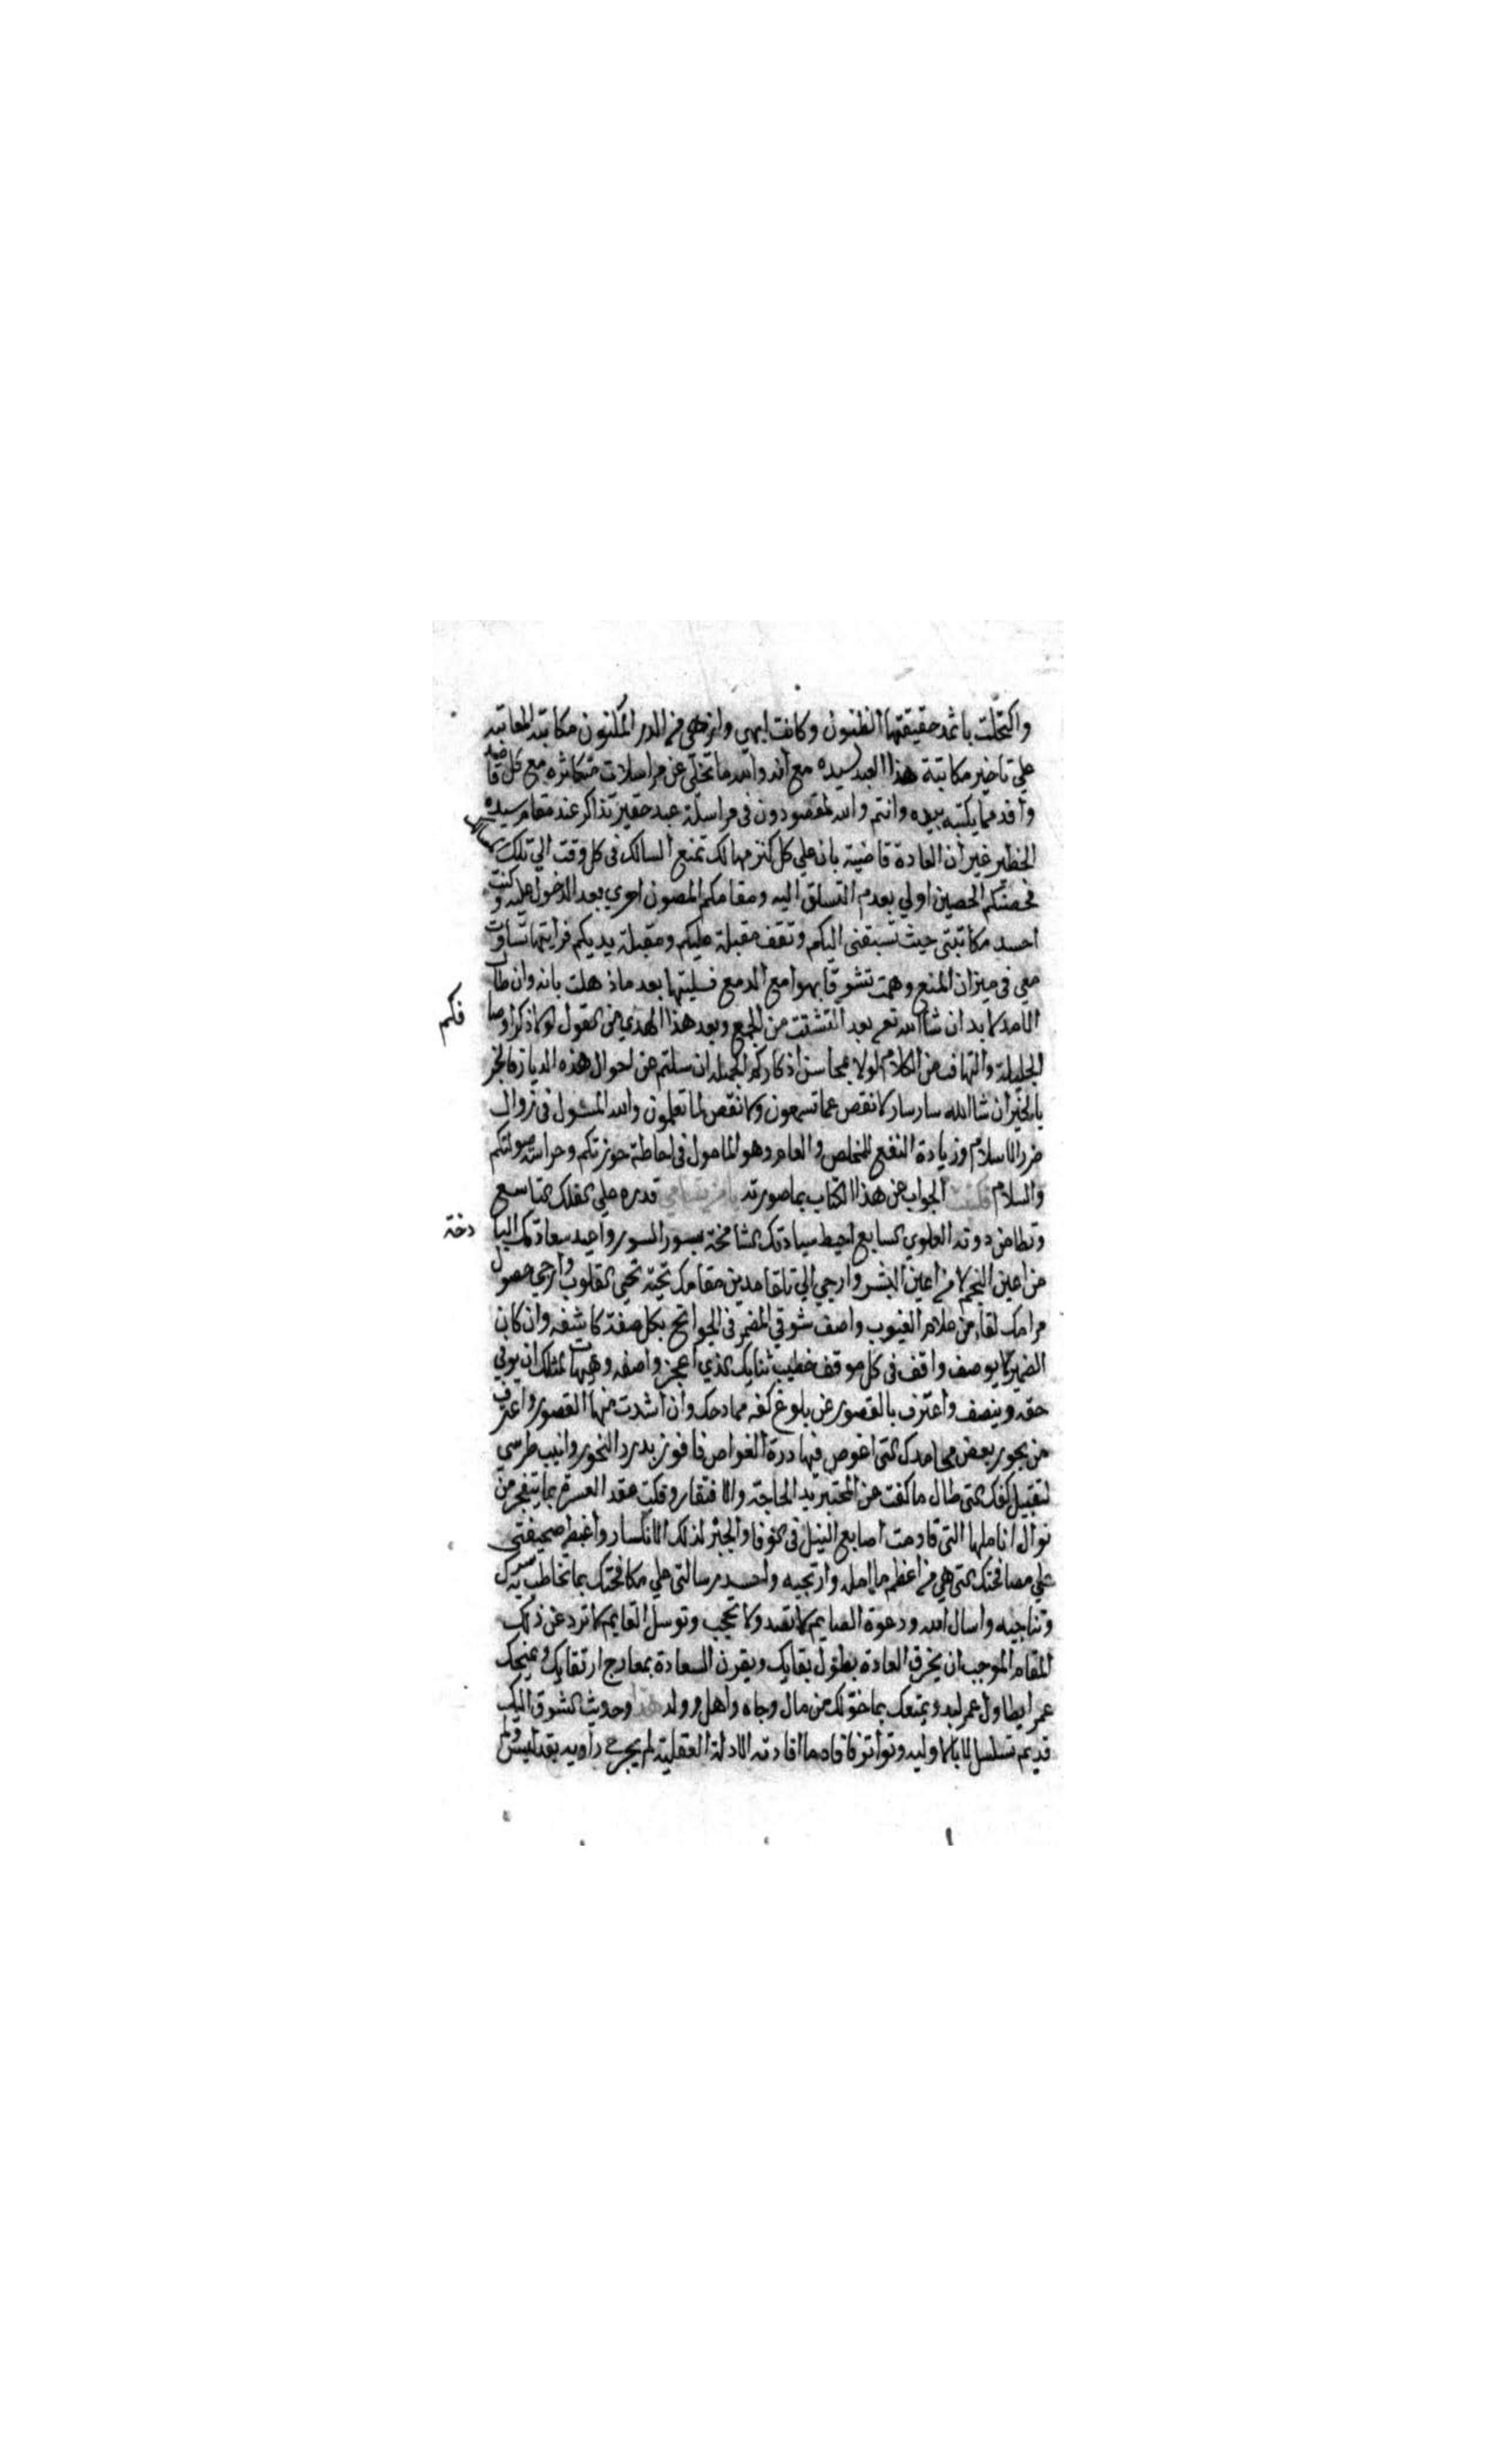 واكتحلت باثمد حقيقتها الظنون وكانت ابهى وازهى من الدر المكنون مكاتبة المعاتبة
على تاخير مكاتبة هذا العبد لسيده مع انه والله ما تخلى عن مراسلات متكاثره مع كل قاصد
وافد مما يكتبه بيده وانتم والله المقصودون فى مراسلة عبد حقير تذاكر عند مقام سيده
الخطير غير ان العادة قاضية بان على كل كنز مهالك تمنع السالك فى كل وقت الى تلك المسالك
فحصنكم الحصين اولى بعدم التسلق اليه ومقامكم المصون احرى ببعد الدخول عليه وكنت
احسد مكاتبتى حيث تسبقنى اليكم وتقف مقبلة عليكم ومقبلة يديكم فرايتها تساوت
معى فى ميزان المنع وهمت تشوقا بهوامع الدمع فسليتها بعد ما ذهلت بانه وان طال
الامد لابد ان شا الله تعـ بعد التشتت من الجمع وبعد هذا الهدي من القول لولا ذكر اوصا
فكم
الجليلة والتهافت من الكلام لولا محاسن اذكاركم الجميله ان سلتم عن احوال هذه الديار فالخبر
بالخير ان شا الله سار سار لا نقص عما تسمعون ولا نقص لما تعلمون والله المسئول فى زوال
ضرر الاسلام وزيادة النفع للخاص والعام وهو المامول فى احاطة حوزتكم وحراسة صولتكم
والسلام فكتبت الجواب عن هذا الكتاب بما صورته يا من يتسامى قدره على الفلك التاسع
وتطامن دونه العلوي السابع احيط سيادتك الشامخة بسور السور واعيد سعادتك البا
ذخة
من اعين النجم لا من اعين البشر وارجي الى تلقا مدين مقامك تحية تحيى القلوب وارجى حصول
مرامك لقا من علام الغيوب واصف شوقي المضمر فى الجوانح بكل صفة كاشفه وان كان
الضمير لا يوصف واقف فى كل موقف خطيب ثنايك الذي اعجز واصفه وهيهات لمثلك ان يوفى
حقه وينصف واعترف بالقصور عن بلوغ كنه ممادحك وان اشدت منها القصور واغترف
من بحور بعض محامدك التى اغوص فيها درة الغواص فافوز بدرر النحور وانيب طرسي
لتقبيل كفك التى طال ما كفت عن المحتبر يد الحاجة والافتقار وفكت عقد العسرة بما ينفجر من
نوال اناملها التى قاومت اصابع النيل فى الوفا والجبر لذلك الانكسار واغبط صحيفتى
على مصافحتك التى هى من اعظم ما امله وارتجيه واحسد رسالتى على مكافحتك بما تخاطب به سرك
وتناجيه واسال الله ودعوة الصايم لا تصد ولا تحجب وتوسل القايم لا ترد عن ذلك
المقام الموجب ان يخرق العادة بطول بقايك ويقرن السعادة بمعارج ارتقايك ويمنحك
عمرا يطاول عمر لبد ويمتعك بما خولك من مال وجاه واهل وولد هذا وحديث الشوق اليك
قديم تسلسل لا بالاوليه وتواتر فافاد ما افادته الادلة العقلية لم يجرح راويه بتدليس ولم